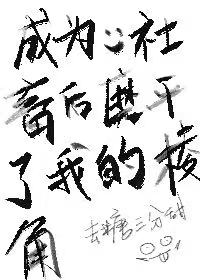 成为社
畜后磨平
了我的棱
角
去糖三分甜